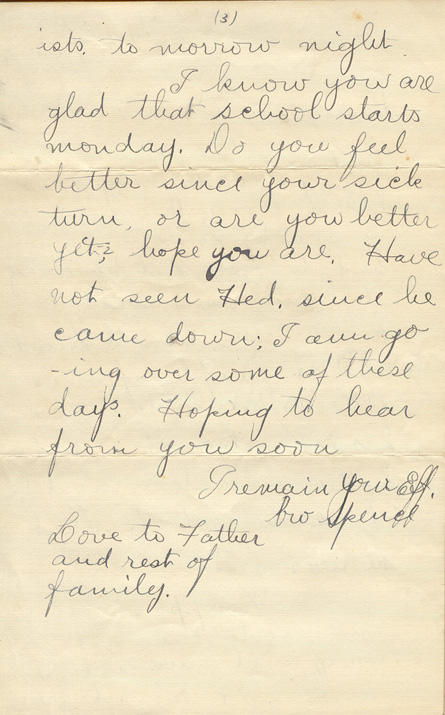 (3)
ists. to morrow night.
I know you are
glad that school starts
monday. Do you feel
better since your sick
turn, or are you better
yet; hope you are. Have
not seen Hed. since he
came down; I am go
-ing over some of these
days. Hoping to hear
from you soon
I remain your Eff.
bro Spence
Love to Father
and rest of
family.